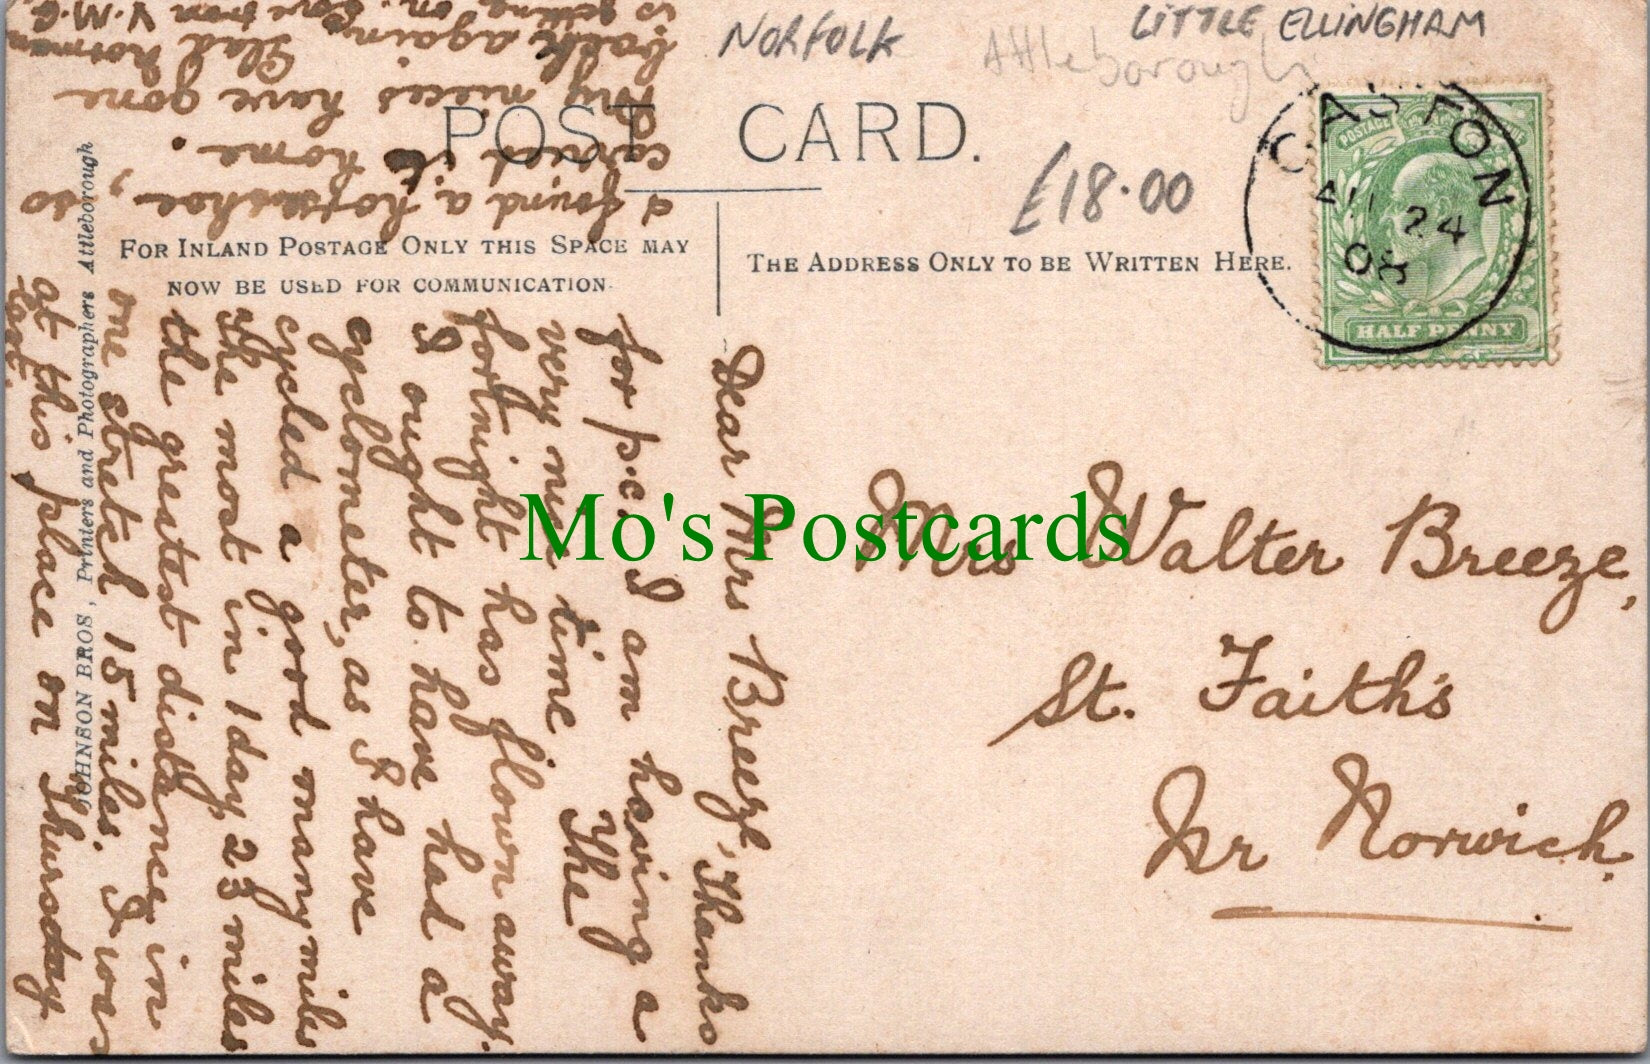 NORFOLK
LITTLE ELLINGHAM
Attleborough
POST CARD.
£18.00
CASTON
AU 24
08
POSTAGE
HALF PENNY
FOR INLAND POSTAGE ONLY THIS SPACE MAY
NOW BE USED FOR COMMUNICATION.
THE ADDRESS ONLY TO BE WRITTEN HERE.
JOHNSON BROS, Printers and Photographers Attleborough
Dear Mrs Breeze, Thanks
for p.c. I am having a
very nice time The
fortnight has flown away.
I ought to have had a
cyclometer, as I have
cycled a good many miles
the most in 1 day, 23 miles
the greatest distance in
one stretch 15 miles. I was
at this place on Thursday
last.
I found a horseshoe, so
carried it home.
My nieces have gone
back again. Glad Norman
is getting on. Love from V.M.G.
Mrs Walter Breeze,
St. Faith's
Nr Norwich.
Mo's Postcards